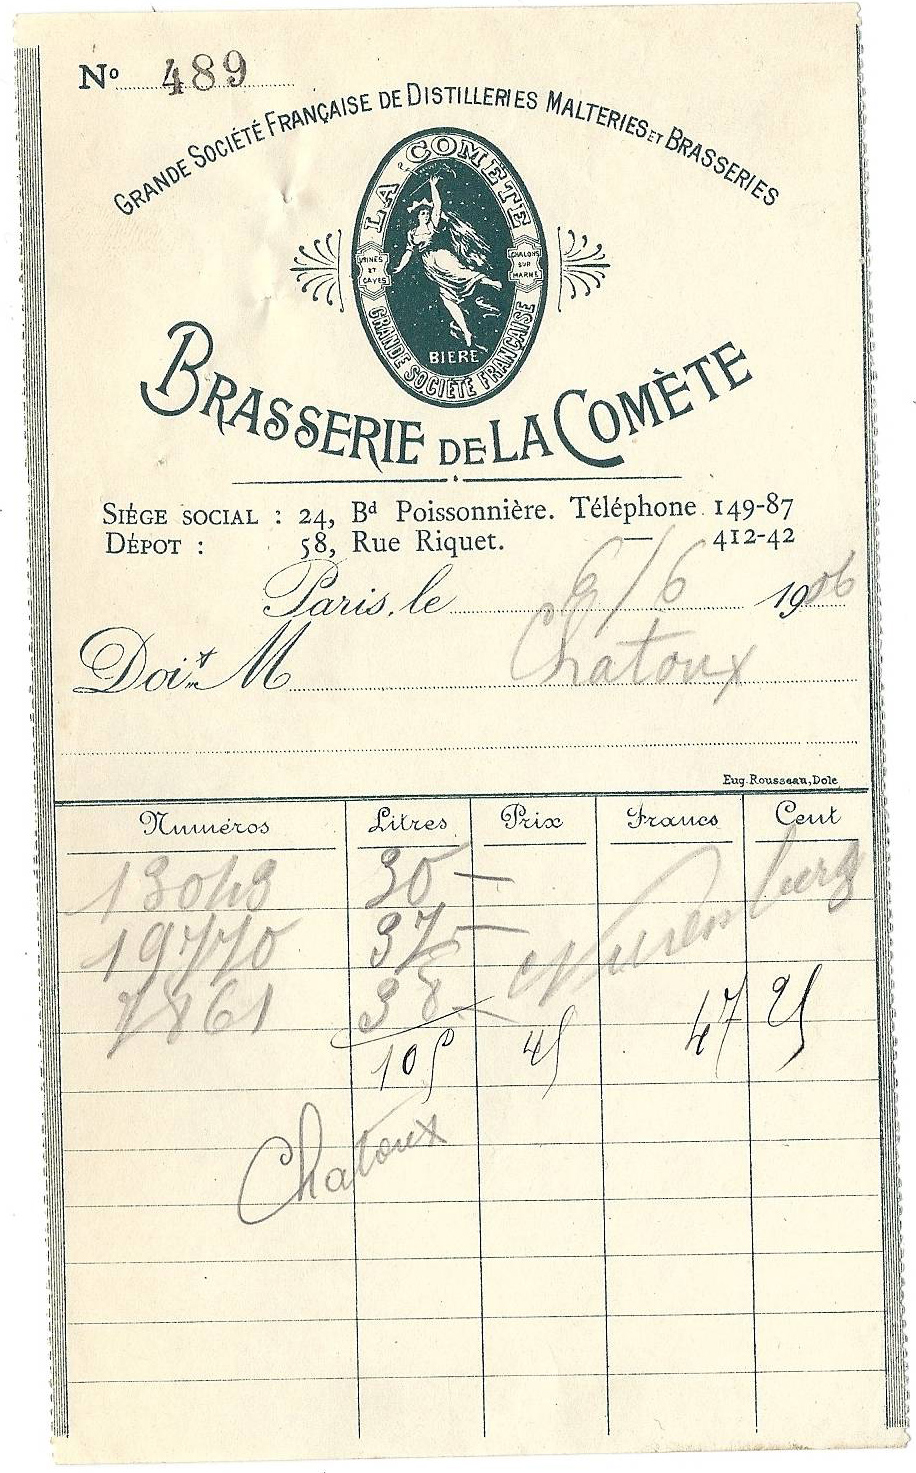 No 489
GRANDE SOCIÉTÉ FRANÇAISE DE DISTILLERIES MALTERIES ET BRASSERIES
LA COMETE
USINES ET CAVES
CHALONS SUR MARNE
BIERE
GRANDE SOCIÉTÉ FRANÇAISE
BRASSERIE DE LA COMÈTE
SIÉGE SOCIAL : 24, Bd Poissonnière. Téléphone 149-87
DÉPOT : 58, Rue Riquet. — 412-42
Paris, le 6/6 1906
Doit M Chatoux
Eug. Rousseau, Dole
Numéros Litres Prix Francs Cent
30 —
19770 37 —
7861 38 —
Nuremberg
105 45 47 25
Chatoux